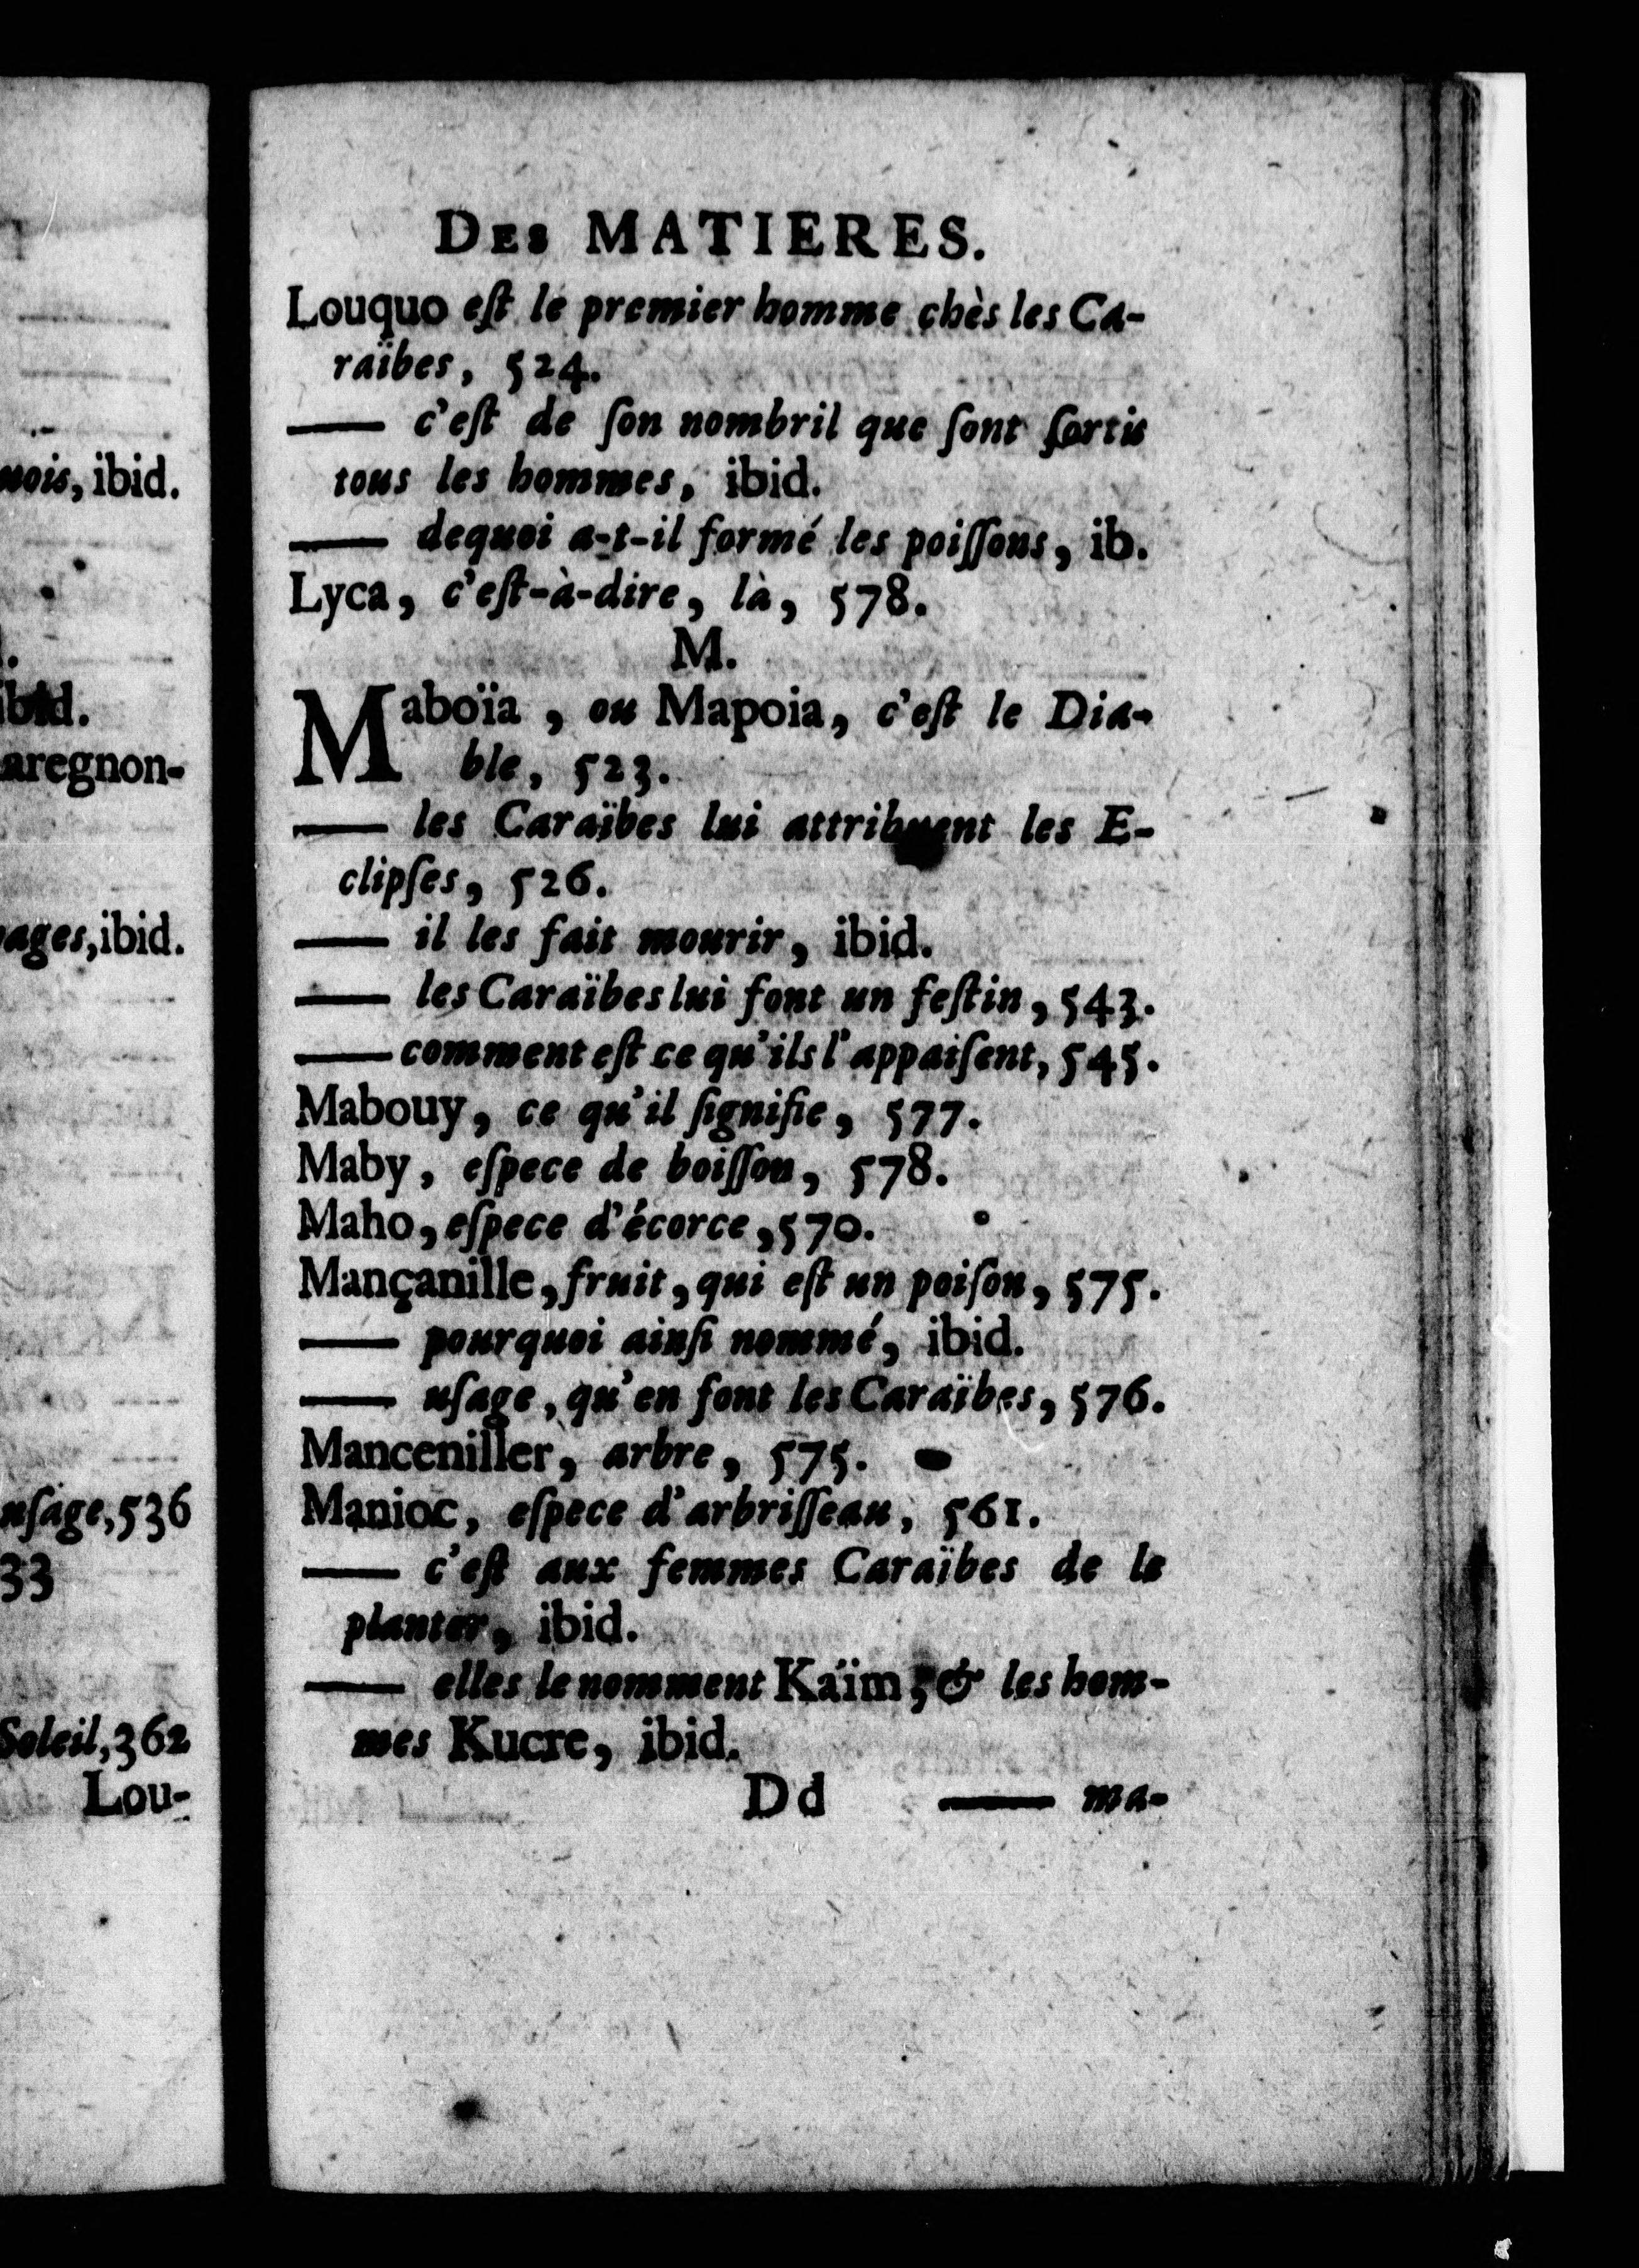 uois, ibid.
ibid.
aregnon-
ages, ibid.
uſage, 536
33
Soleil, 362
Lou-
DES MATIERES.
Louquo eſt le premier homme chès les Ca-
raïbes, 524.
—— c'eſt de ſon nombril que ſont ſortis
tous les hommes, ibid.
—— dequoi a-t-il formé les poiſſons, ib.
Lyca, c'eſt-à-dire, là, 578.
M.
Maboïa, ou Mapoia, c'eſt le Dia-
ble, 523.
—— les Caraïbes lui attribuent les E-
clipſes, 526.
—— il les fait mourir, ibid.
—— les Caraïbes lui font un feſtin, 543.
—— comment eſt ce qu'ils l'appaiſent, 545.
Mabouy, ce qu'il ſignifie, 577.
Maby, eſpece de boiſſon, 578.
Maho, eſpece d'écorce, 570.
Mançanille, fruit, qui eſt un poiſon, 575.
—— pourquoi ainſi nommé, ibid.
—— uſage, qu'en font les Caraïbes, 576.
Manceniller, arbre, 575.
Manioc, eſpece d'arbriſſeau, 561.
—— c'eſt aux femmes Caraïbes de le
planter, ibid.
—— elles le nomment Kaïm, & les hom-
mes Kucre, ibid.
Dd —— ma-